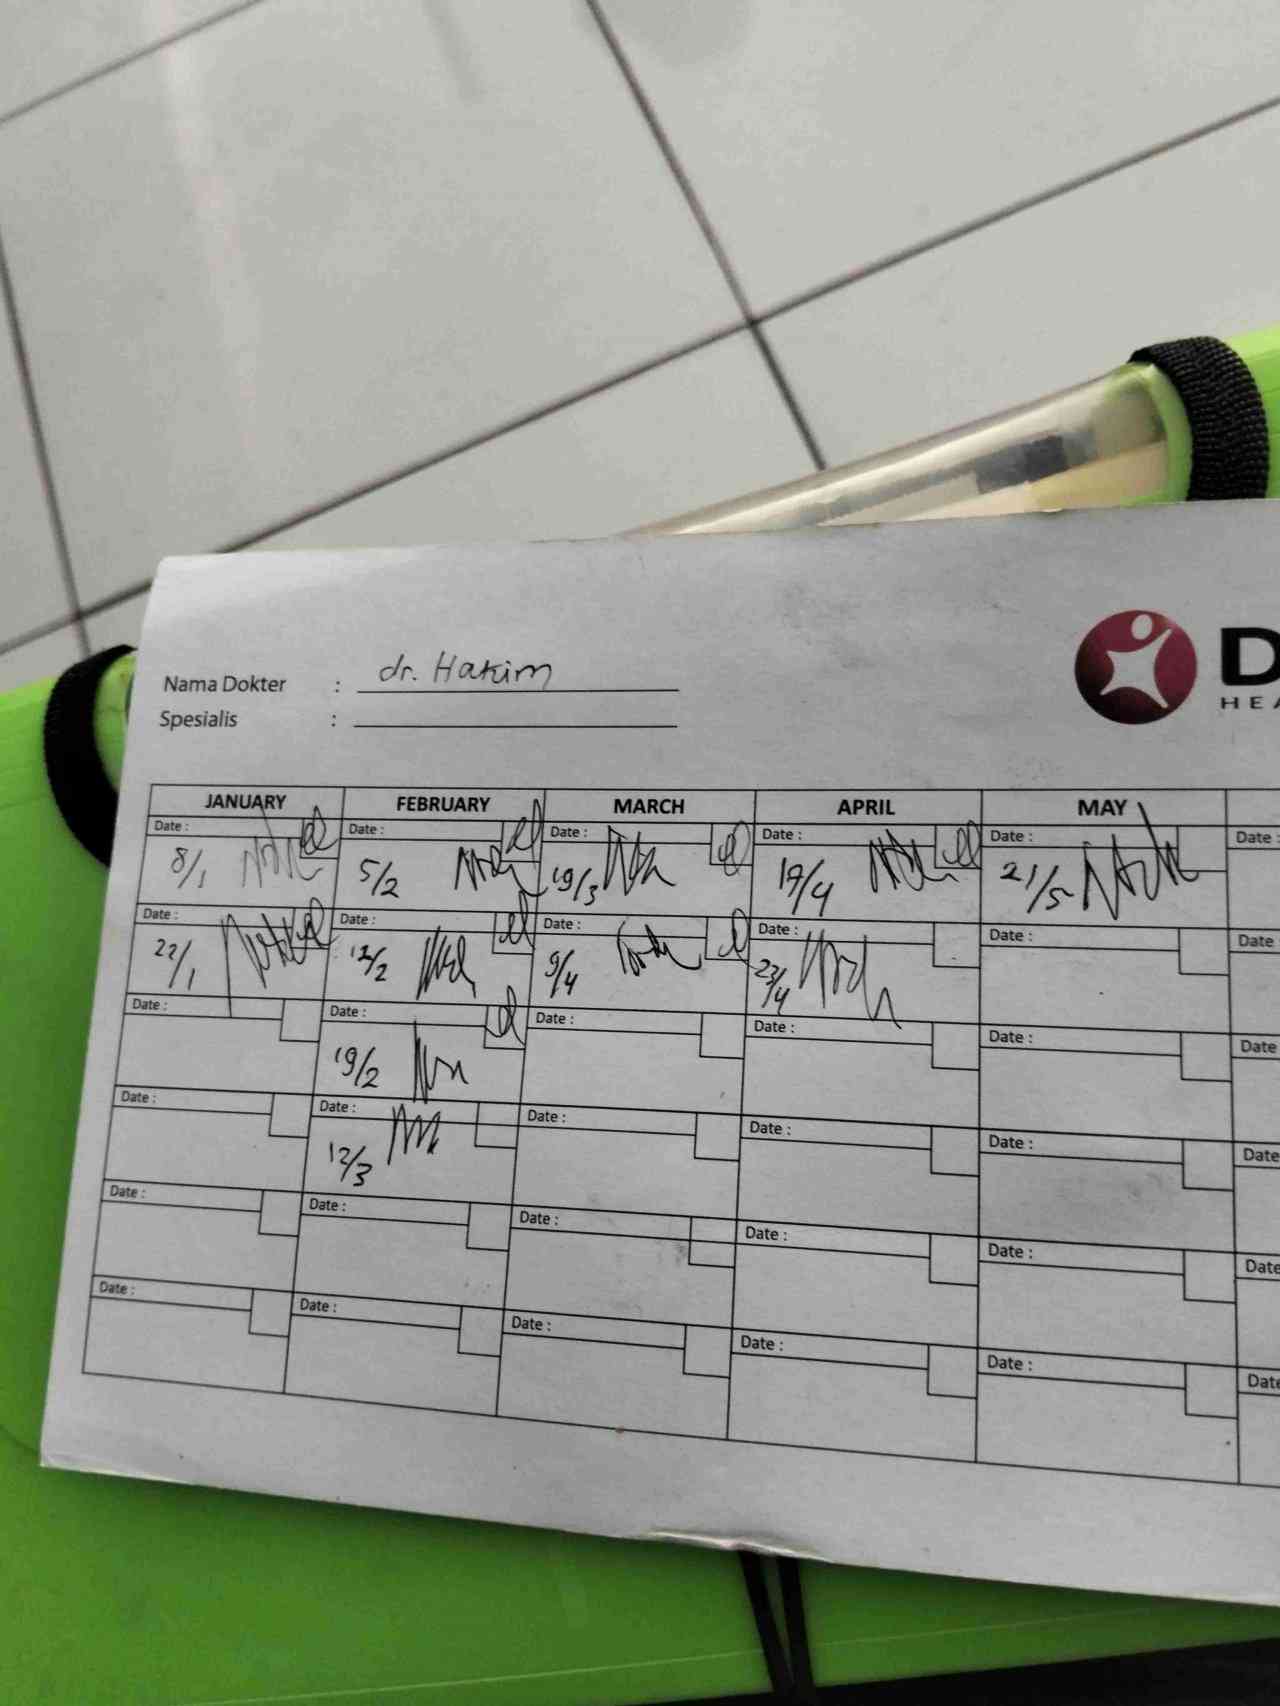 dr. Hakim
Nama Dokter :
Spesialis :
D
HEA
JANUARY FEBRUARY MARCH APRIL MAY
Date : Date : Date : Date : Date : Date :
8/1 5/2 19/3 17/4 21/5
Date : Date : Date : Date : Date : Date
22/1 12/2 9/4 23/4
Date : Date : Date : Date : Date : Date
19/2
Date : Date : Date : Date : Date : Date
12/3
Date : Date : Date : Date : Date : Date
Date : Date : Date : Date : Date : Date